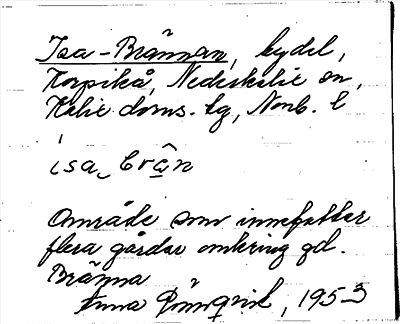 Isa-Brännan, bydel,
Korpikå, Nederkalix sn,
Kalix doms. lg, Norrb. l
isa brân
Område som innefattar
flera gårdar omkring gd.
Bränna
Anna Rönnqvist, 1953